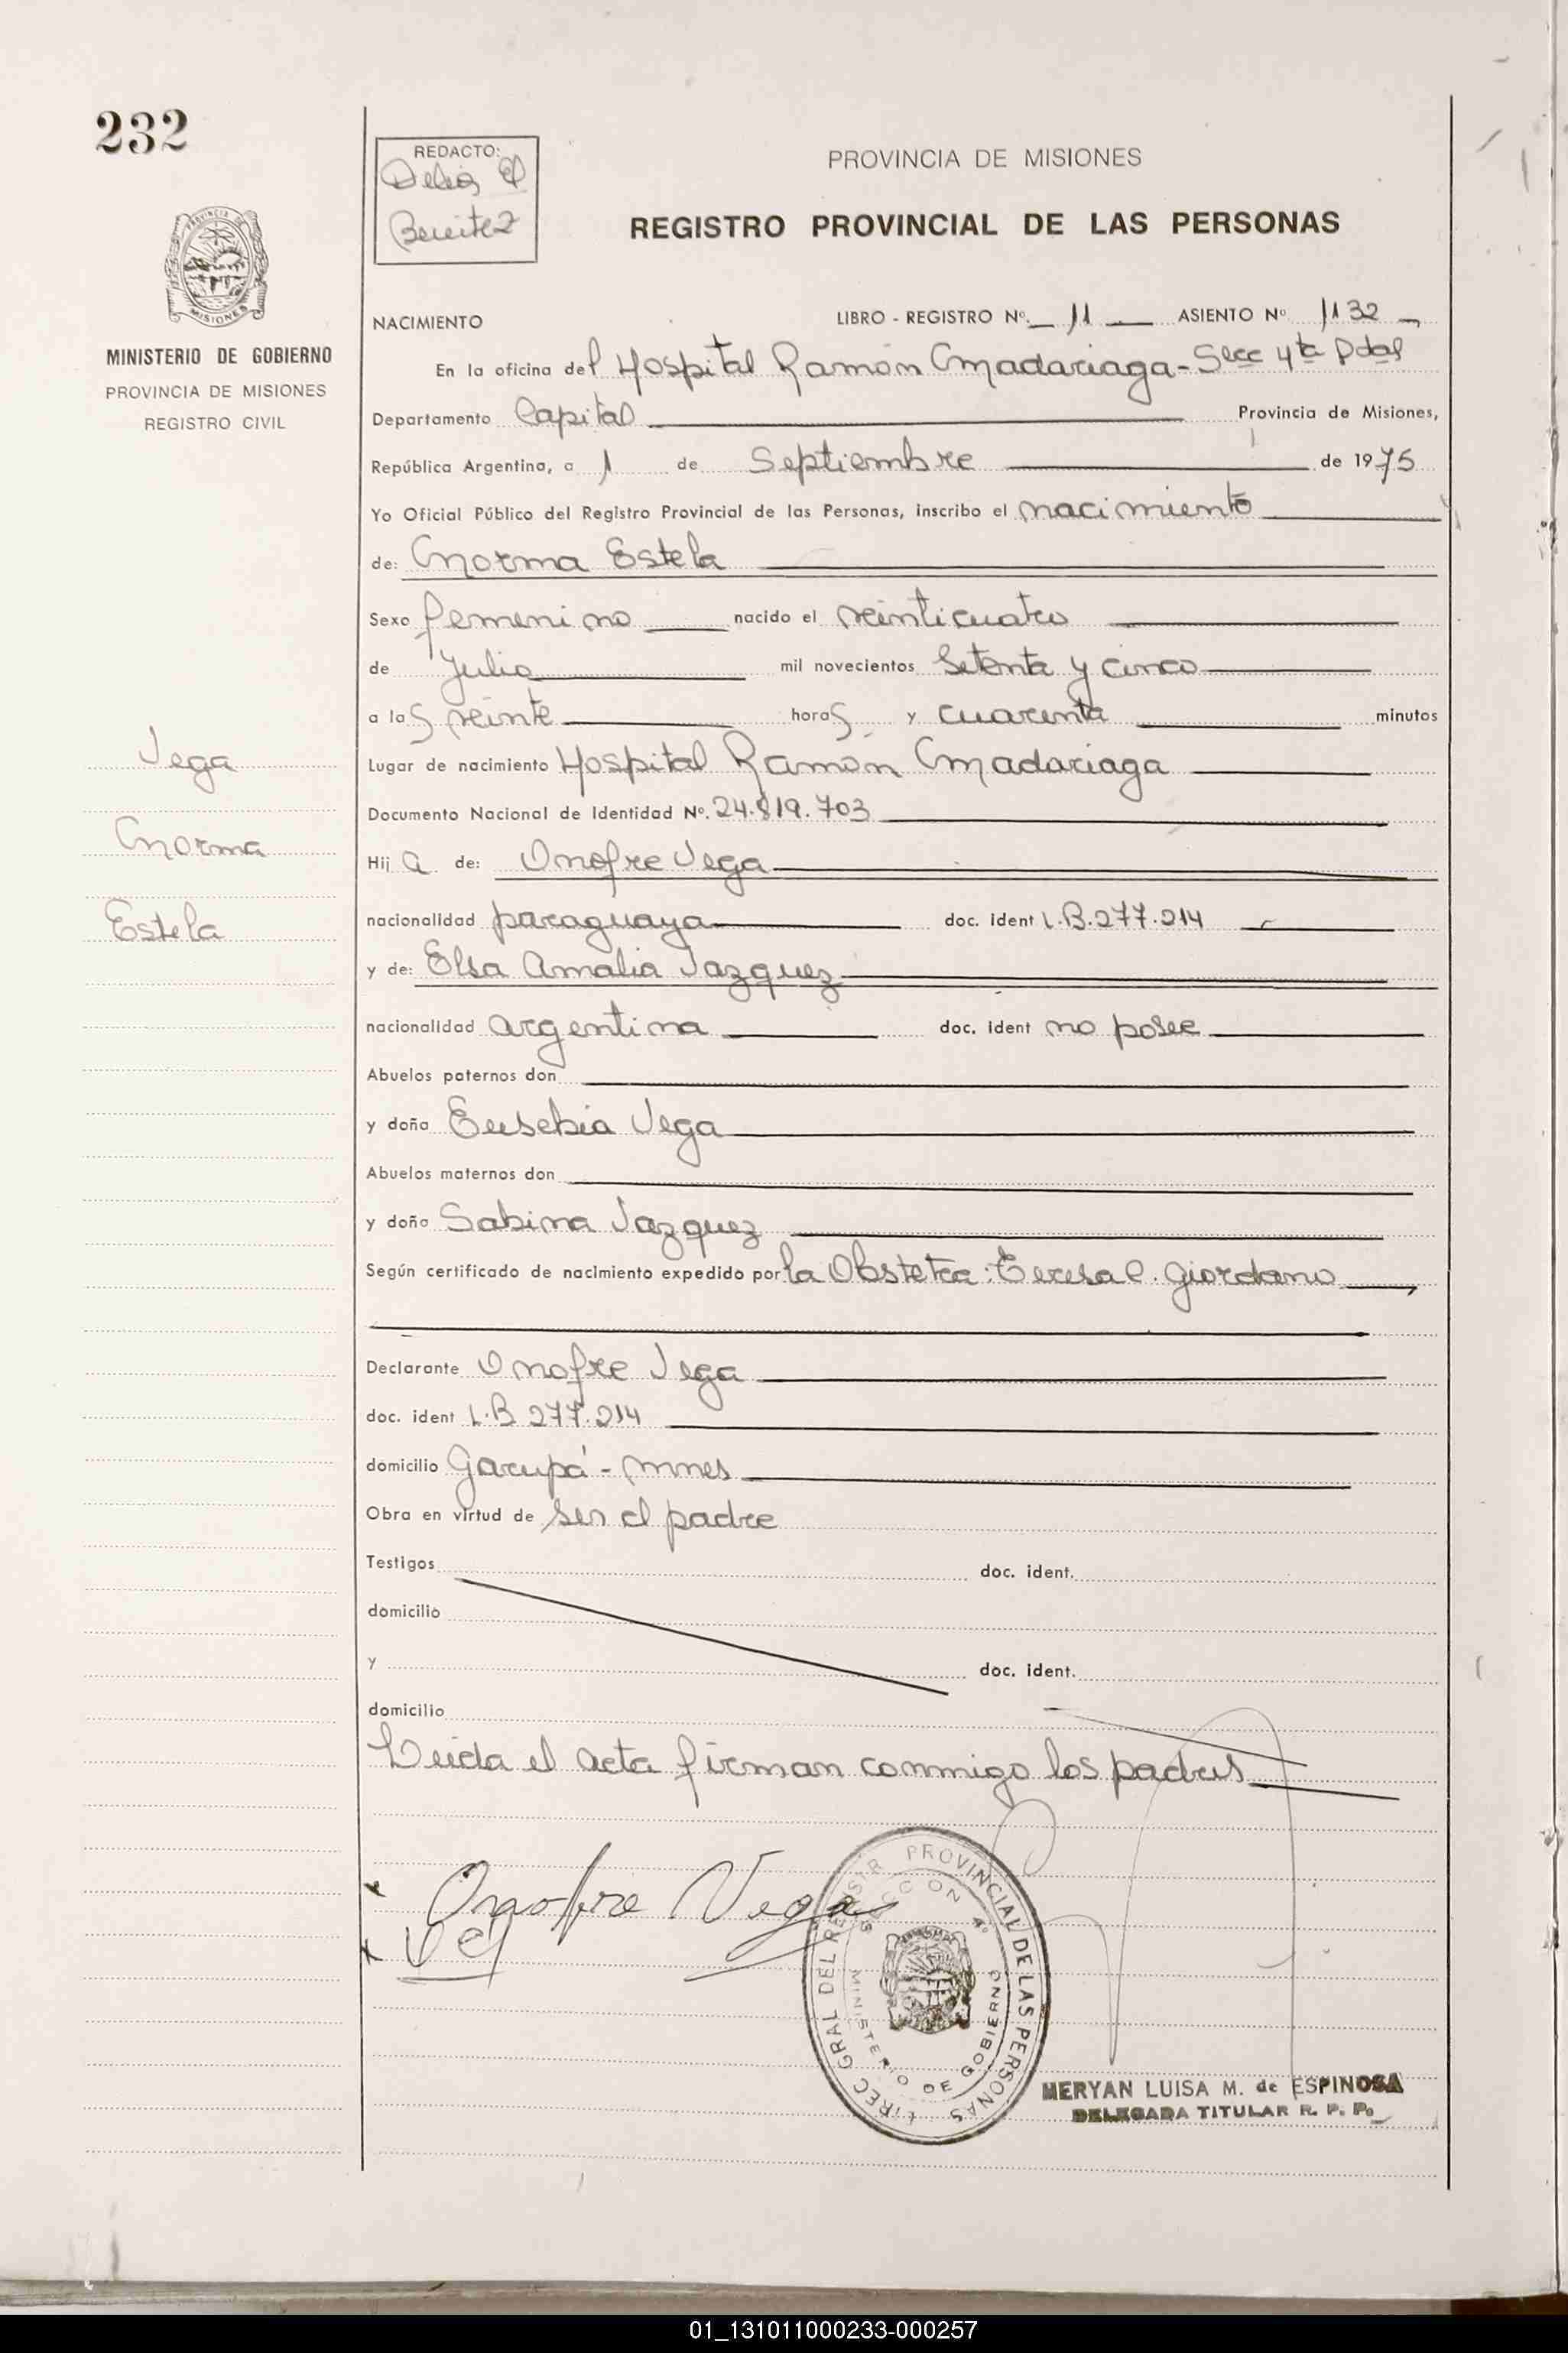 232
REDACTO:
Delia
Benitez
PROVINCIA DE MISIONES
REGISTRO PROVINCIAL DE LAS PERSONAS
MISIONES
MINISTERIO DE GOBIERNO
PROVINCIA DE MISIONES
REGISTRO CIVIL
NACIMIENTO LIBRO - REGISTRO Nº 11 ASIENTO Nº 1132
En la oficina del Hospital Ramón Madariaga - Secc 4ta Pdas
Departamento Capital Provincia de Misiones,
República Argentina, a 1 de Septiembre de 1975
Yo Oficial Público del Registro Provincial de las Personas, inscribo el nacimiento
de: Norma Estela
Sexo femenino nacido el veinticuatro
de Julio mil novecientos Setenta y cinco
a las veinte horas y cuarenta minutos
Lugar de nacimiento Hospital Ramón Madariaga
Documento Nacional de Identidad Nº. 24.819.703
Hija de: Onofre Vega
nacionalidad paraguaya doc. ident L.B.277.214
y de: Elsa Amalia Vazquez
nacionalidad argentina doc. ident no posee
Abuelos paternos don
y doña Eusebia Vega
Abuelos maternos don
y doña Sabina Vazquez
Según certificado de nacimiento expedido por la Obstetra: Teresa C. Giordano
Declarante Onofre Vega
doc. ident L.B 277.214
domicilio Garupá - Mnes
Obra en virtud de ser el padre
Testigos doc. ident.
domicilio
y doc. ident.
domicilio
Leida el acta firman conmigo los padres
Vega
Norma
Estela
Onofre Vega
DIREC GRAL DEL REGISTR PROVINCIAL DE LAS PERSONAS
SECCION 4º
MINISTERIO DE GOBIERNO
MERYAN LUISA M. de ESPINOSA
DELEGADA TITULAR R. P. P.
01_131011000233-000257